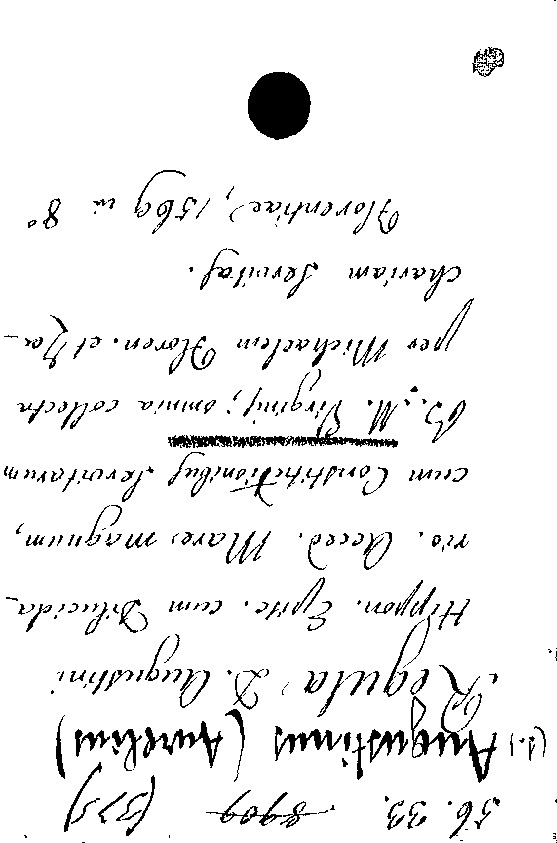 56. 33. 8909. (375)
(S.) Augustinus (Aurelius)
Regula D. Augustini
Hippon. Epise. cum Dilucida-
rio. Acced. Mare magnum,
cum Constitutionibus Servitarum
B. M. Virginis; omnia collecta
per Michaelem Floren. et Za-
chariam Servitas.
Florentiae, 1569 in 8°